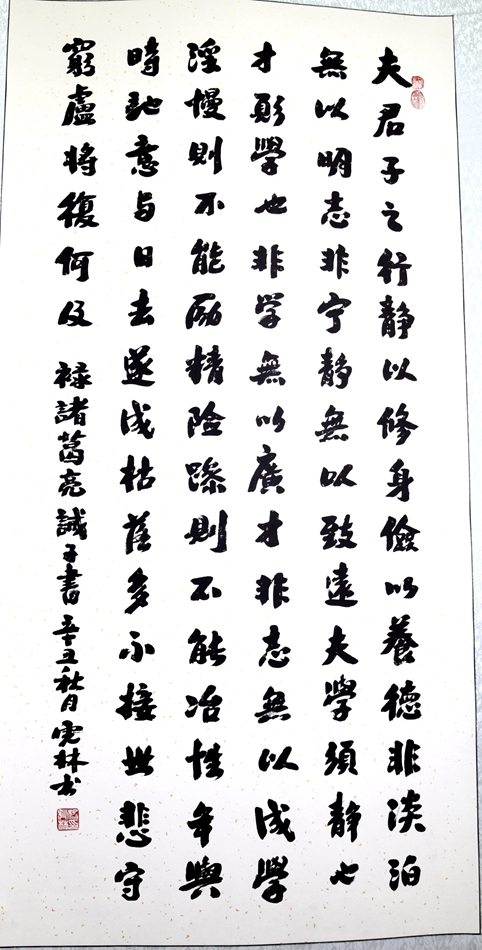 夫君子之行静以修身儉以養德非淡泊
無以明志非宁静無以致遠夫學須静也
才須學也非学無以廣才非志無以成學
淫慢則不能励精险躁則不能冶性年與
時馳意与日去遂成枯落多不接世悲守
窮盧將復何及 禄諸葛亮誡子書 辛丑秋月 林书